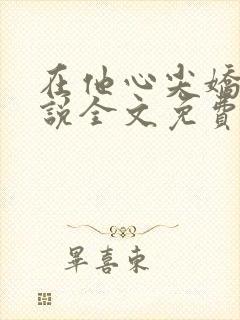 在他心尖嬌
說全文免費
畢喜東